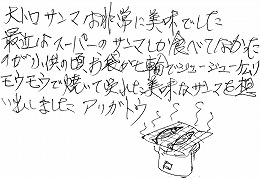 大トロサンマは非常に美味でした
最近はスーパーのサンマしか食べてなかった
のが子供の頃お袋が七輪でジュージュー煙り
モウモウで焼いて呉れた美味なサンマを想
い出しました アリガトウ